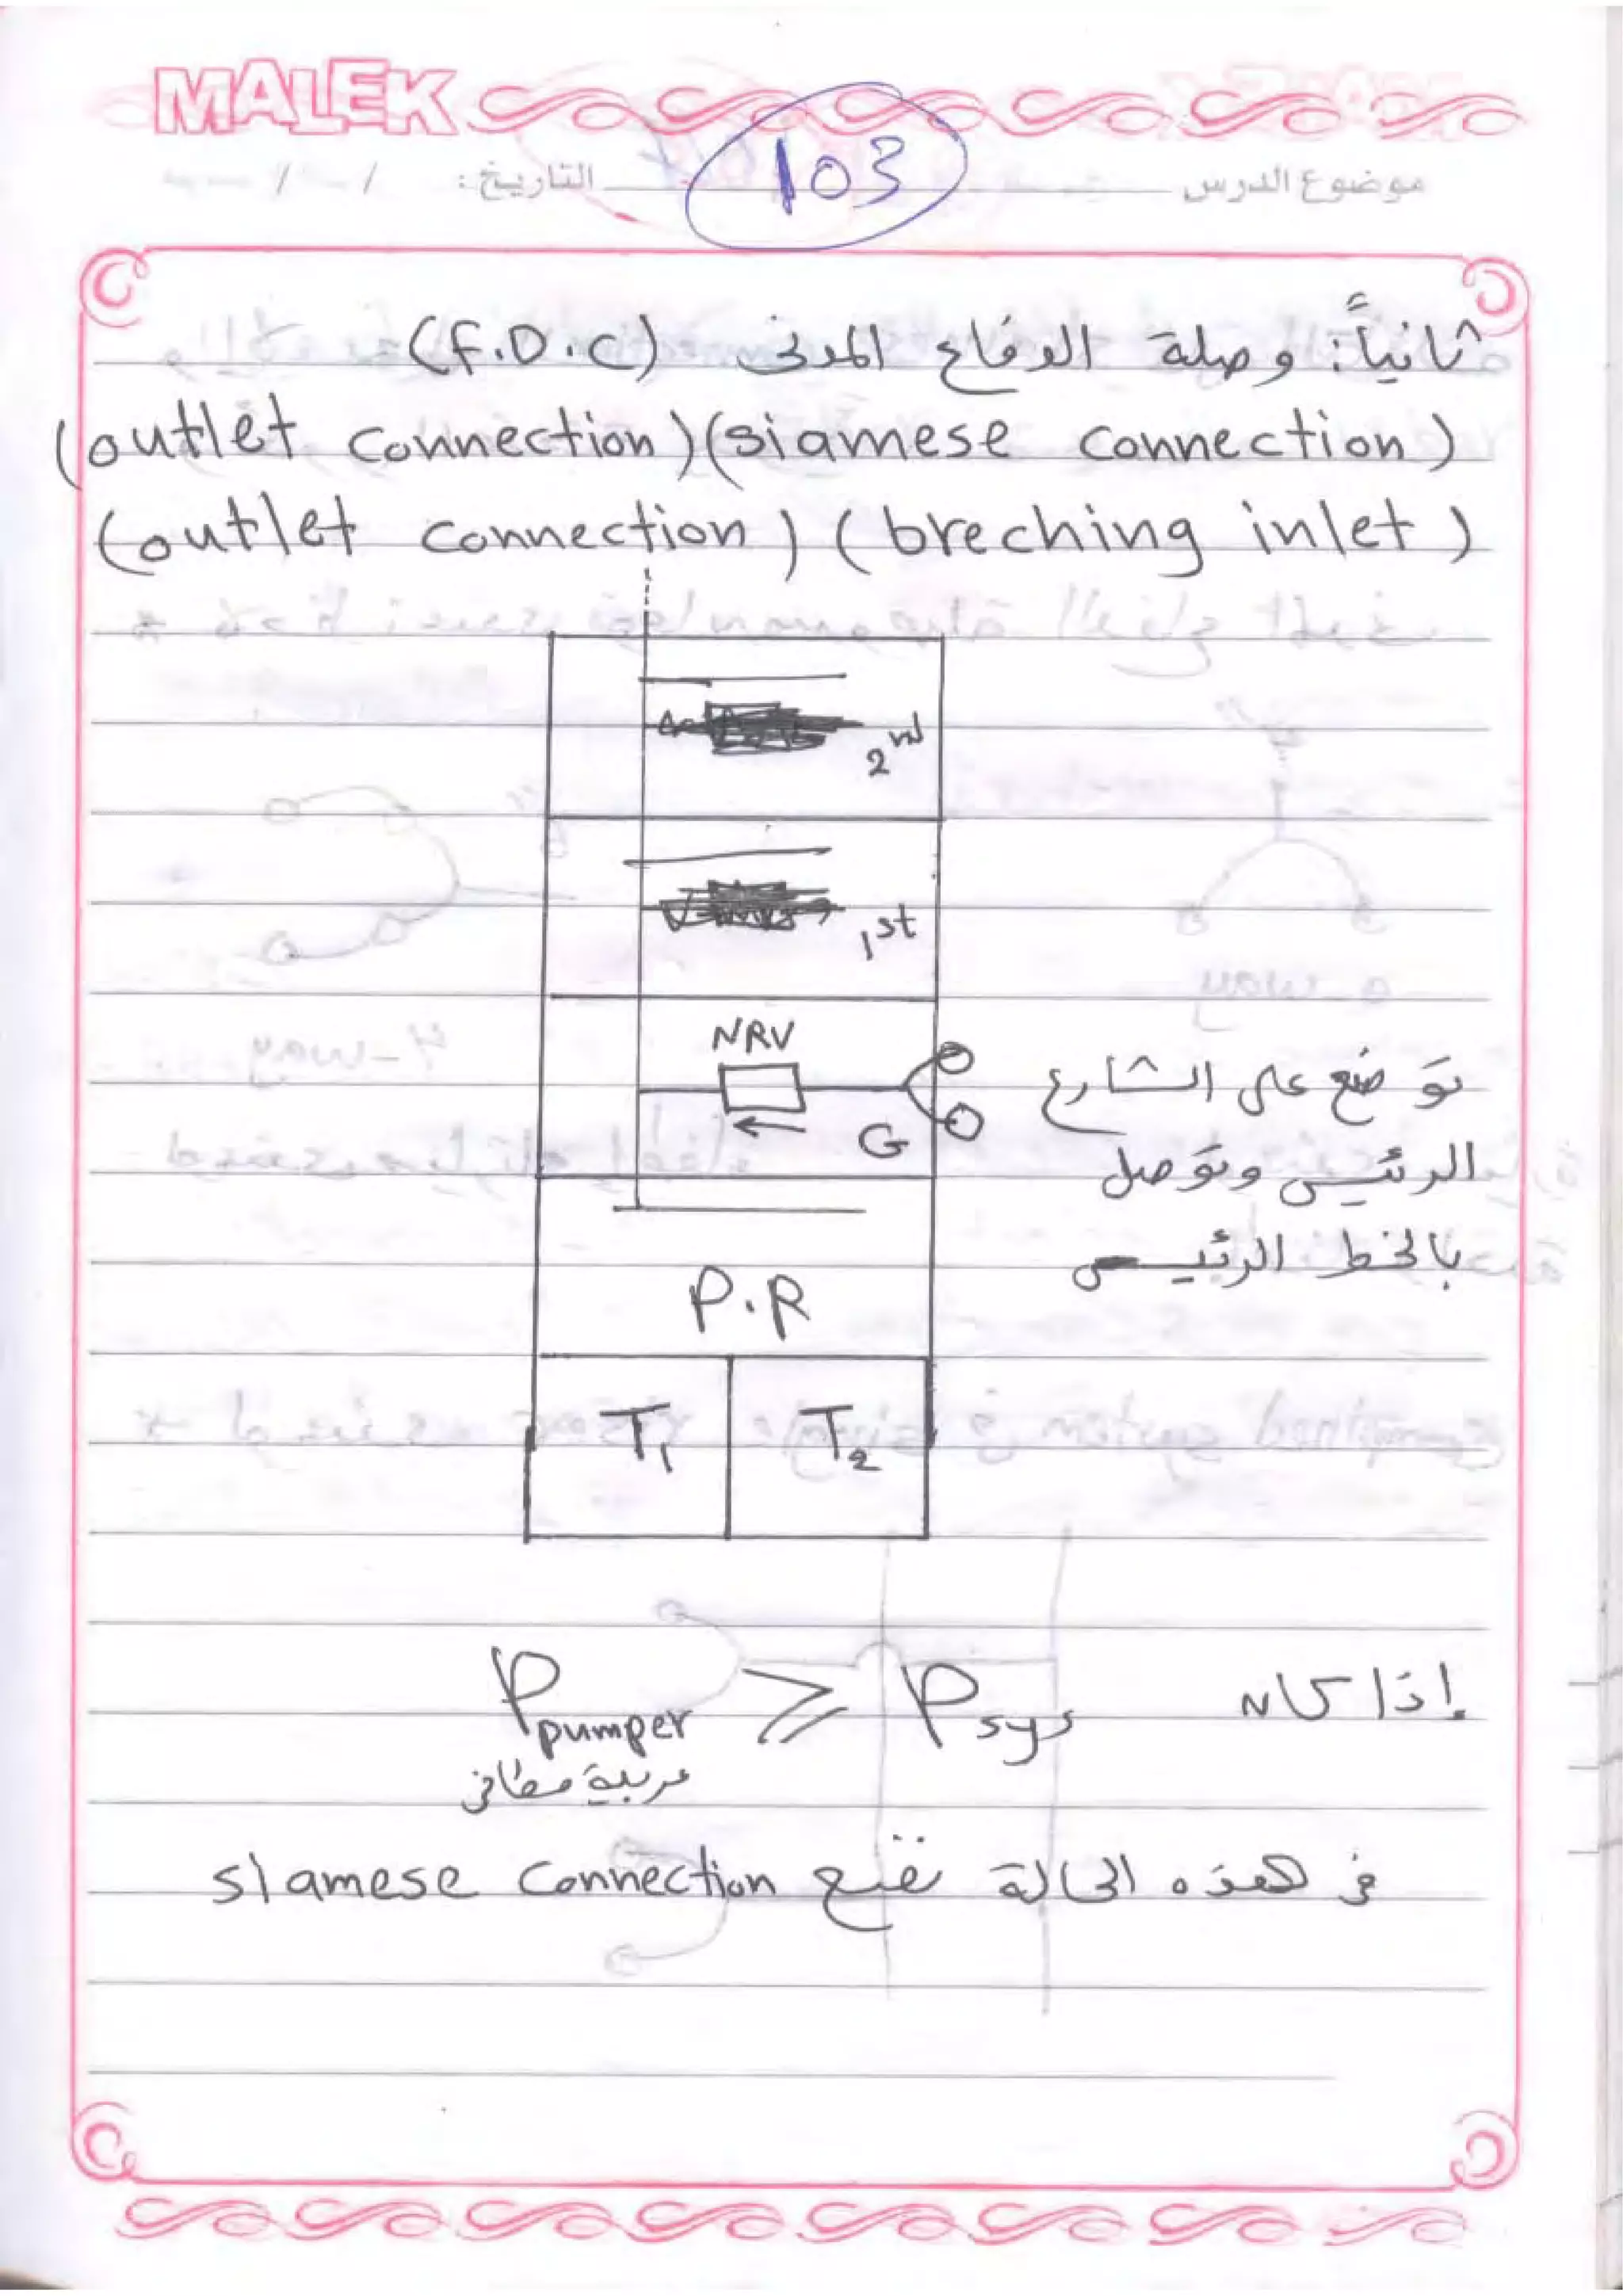 MALEK
موضوع الدرس
103
التاريخ: / /
ثانياً: وصلة الدفاع المدنى (F.D.C)
(outlet connection)(siamese connection)
(outlet connection) (breching inlet)
2nd
1st
NRV
G
توضع على الشارع
الرئيسى وتوصل
بالخط الرئيسى
P.R
T1
T2
إذا كان
Ppumper ≥ Psys
عربية مطافى
فى هذه الحالة نضع siamese connection